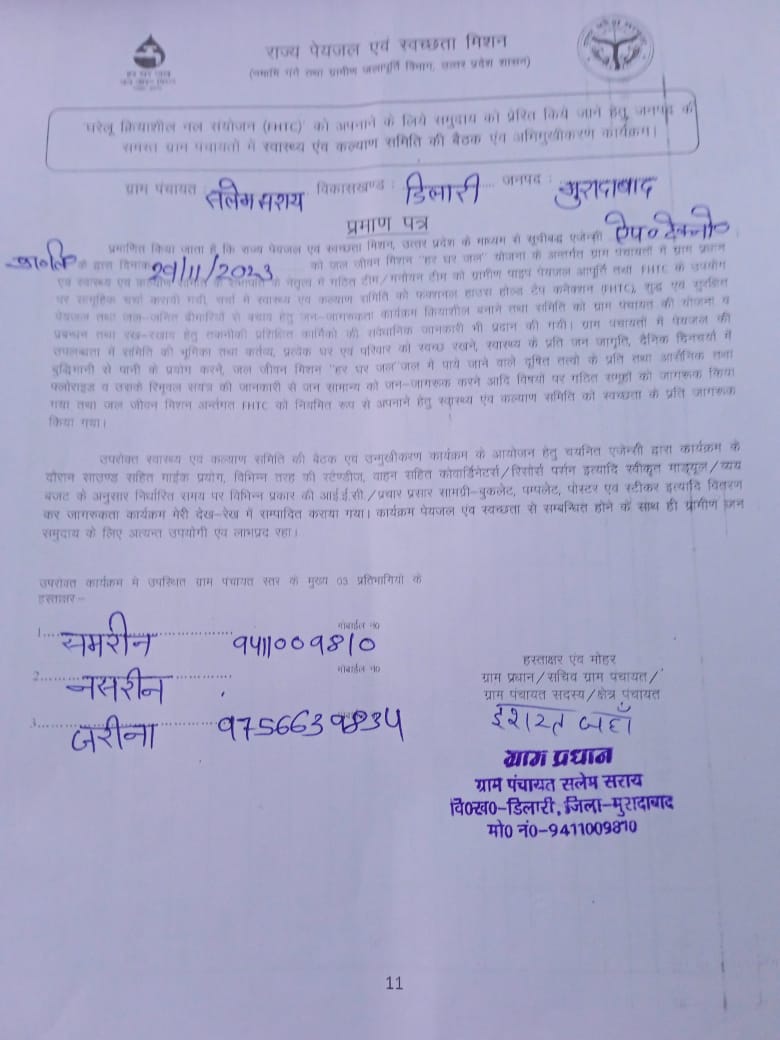 राज्य पेयजल एवं स्वच्छता मिशन
हर घर जल
(नमामि गंगे तथा ग्रामीण जलापूर्ति विभाग, उत्तर प्रदेश शासन)
'घरेलू क्रियाशील नल संयोजन (FHTC)' को अपनाने के लिये समुदाय को प्रेरित किये जाने हेतु, जनपद की
समस्त ग्राम पंचायतों में स्वास्थ्य एंव कल्याण समिति की बैठक एंव अभिमुखीकरण कार्यक्रम।
ग्राम पंचायत : सलेम सराय विकासखण्ड : डिलारी जनपद : मुरादाबाद
प्रमाण पत्र
प्रमाणित किया जाता है, कि राज्य पेयजल एवं स्वच्छता मिशन, उत्तर प्रदेश के माध्यम से सूचीबद्ध एजेन्सी ऐप० टेक्नो०
के द्वारा दिनांक 29/11/2023 को जल जीवन मिशन "हर घर जल" योजना के अन्तर्गत ग्राम पंचायतों में ग्राम प्रधान
एवं स्वास्थ्य एवं कल्याण समिति के नेतृत्व में गठित टीम/मनोयन टीम को ग्रामीण पाइप पेयजल आपूर्ति तथा FHTC के उपयोग
पर सामूहिक चर्चा करायी गयी, चर्चा में स्वास्थ्य एंव कल्याण समिति को फंक्शनल हाउस होल्ड टैप कनेक्शन (FHTC), शुद्ध एवं सुरक्षित
पेयजल तथा जल-जनित बीमारियों से बचाव हेतु जन-जागरूकता कार्यक्रम क्रियाशील बनाने तथा समिति को ग्राम पंचायत की योजना व
प्रबन्धन तथा रख-रखाव हेतु तकनीकी प्रशिक्षित कार्मिकों की संवैधानिक जानकारी भी प्रदान की गयी। ग्राम पंचायतों में पेयजल की
उपलब्धता में समिति की भूमिका तथा कर्तव्य, प्रत्येक घर एवं परिवार को स्वच्छ रखने, स्वास्थ्य के प्रति जन जागृति, दैनिक दिनचर्या में
बुद्धिमानी से पानी के प्रयोग करने, जल जीवन मिशन "हर घर जल" जल में पाये जाने वाले दूषित तत्वों के प्रति तथा आर्सेनिक तथा
फ्लोराइड व उसके रिमूवल संयत्र की जानकारी से जन सामान्य को जन-जागरूक करने आदि विषयों पर गठित समूहों को जागरूक किया
गया तथा जल जीवन मिशन अन्तंगत FHTC को नियमित रूप से अपनाने हेतु स्वास्थ्य एंव कल्याण समिति को स्वच्छता के प्रति जागरूक
किया गया।
उपरोक्त स्वास्थ्य एवं कल्याण समिति की बैठक एंव उन्मुखीकरण कार्यक्रम के आयोजन हेतु चयनित एजेन्सी द्वारा कार्यक्रम के
दौरान साउण्ड सहित माईक प्रयोग, विभिन्न तरह की स्टेण्डीज, वाहन सहित कोवार्डिनेटर्स/रिसोर्स पर्सन इत्यादि स्वीकृत माड्यूल/व्यय
बजट के अनुसार निर्धारित समय पर विभिन्न प्रकार की आई.ई.सी./प्रचार प्रसार सामग्री-बुकलेट, पम्पलेट, पोस्टर एवं स्टीकर इत्यादि वितरण
कर जागरूकता कार्यक्रम मेरी देख-रेख में सम्पादित कराया गया। कार्यक्रम पेयजल एंव स्वच्छता से सम्बन्धित होने के साथ ही ग्रामीण जन
समुदाय के लिए अत्यन्त उपयोगी एंव लाभप्रद रहा।
उपरोक्त कार्यक्रम में उपस्थित ग्राम पंचायत स्तर के मुख्य 03 प्रतिभागियों के
हस्ताक्षर:-
1. समरीन मोबाईल नं0 9411009810
2. नसरीन मोबाईल नं0
3. जरीना 9756639834
हस्ताक्षर एंव मोहर
ग्राम प्रधान/सचिव ग्राम पंचायत/
ग्राम पंचायत सदस्य/क्षेत्र पंचायत
इशरत जहाँ
ग्राम प्रधान
ग्राम पंचायत सलेम सराय
वि0ख0-डिलारी, जिला-मुरादाबाद
मो0 नं0-9411009810
11